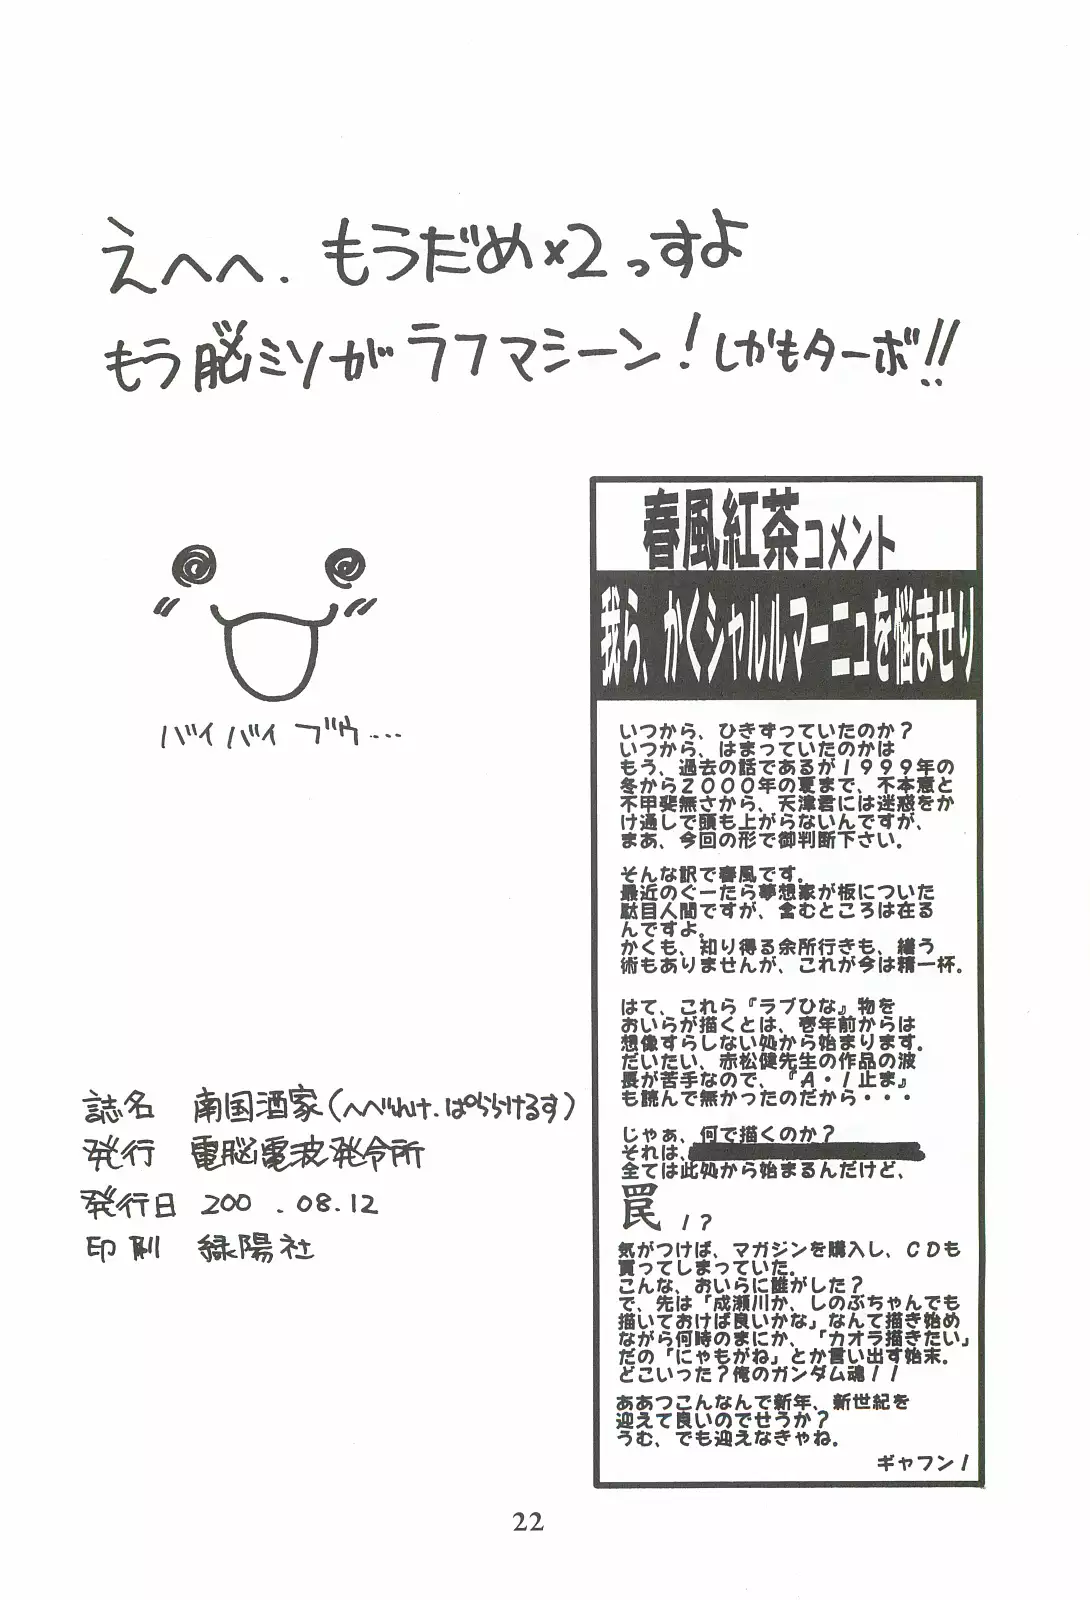 えへへ. もうだめ×2っすよ
もう脳ミソがラフマシーン！しかもターボ!!
バイバイ ブゥ....
春風紅茶コメント
我ら、かくシャルルマーニュを悩ませり
いつから、ひきずっていたのか？
いつから、はまっていたのかは
もう、過去の話であるが１９９９年の
冬から２０００年の夏まで、不本意と
不甲斐無さから、天津君には迷惑をか
け通しで頭も上がらないんですが、
まあ、今回の形で御判断下さい。
そんな訳で春風です。
最近のぐーたら夢想家が板についた
駄目人間ですが、含むところは在る
んですよ。
かくも、知り得る余所行きも、繕う
術もありませんが、これが今は精一杯。
はて、これら『ラブひな』物を
おいらが描くとは、壱年前からは
想像すらしない処から始まります。
だいたい、赤松健先生の作品の波
長が苦手なので、『Ａ・Ｉ止ま』
も読んで無かったのだから・・・
じゃぁ、何で描くのか？
それは、
全ては此処から始まるんだけど、
罠！？
気がつけば、マガジンを購入し、ＣＤも
買ってしまっていた。
こんな、おいらに誰がした？
で、先は「成瀬川か、しのぶちゃんでも
描いておけば良いかな」なんて描き始め
ながら何時のまにか、「カオラ描きたい」
だの「にゃもがね」とか言い出す始末。
どこいった？俺のガンダム魂！！
ああつこんなんで新年、新世紀を
迎えて良いのでせうか？
うむ、でも迎えなきゃね。
ギャフン！
誌名 南国酒家(へべれけ.ぱららけるす)
発行 電脳電波発令所
発行日 200 .08.12
印刷 緑陽社
22